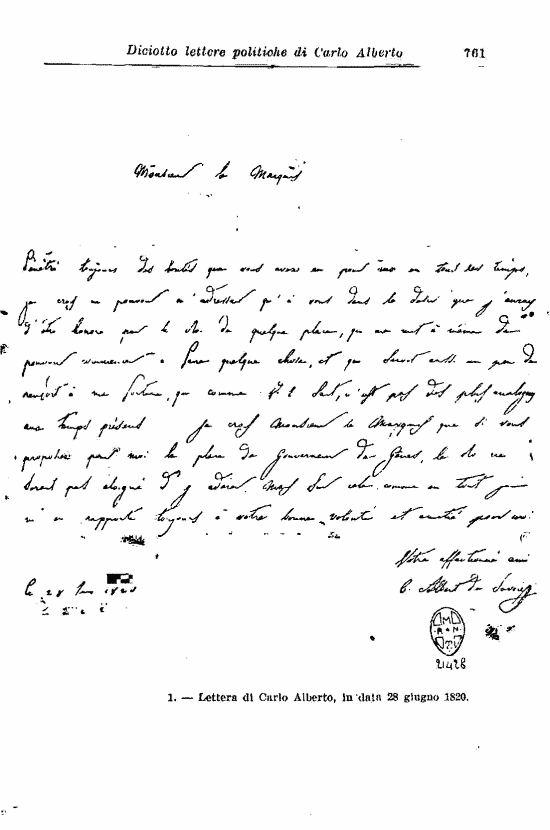 Diciotto lettere politiche di Carlo Alberto 761
Monsieur le Marquis
Pénétré toujours des bontés que vous avez eu pour moi en tout les temps,
je crois ne pouvoir m'adresser qu'à vous dans le désir que j'auray
d'être honoré par le Roi de quelque place, qui me mit à même de
pouvoir commencer à faire quelque chose, et qui servit aussi un peu de
renfort à ma fortune, qui comme il le sait, n'est pas des plus analogues
aux temps présents Je crois Monsieur le Marquis que si vous
proposiez pour moi la place de Gouverneur de Gênes, le Roi ne
serait pas éloigné d'y adhérer. Mais sur cela comme en tout je
m'en rapporte toujours à votre bonne volonté et amitié pour moi.
Votre affectionné ami
le 28 Juin 1820 C. Albert de Savoie
M
R N
TV
21428
1. — Lettera di Carlo Alberto, in data 28 giugno 1820.